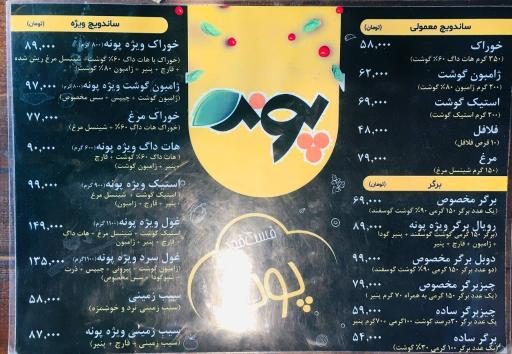 ساندویچ معمولی (تومان)
خوراک ۵۸,۰۰۰
(۳۵۰ گرم هات داگ ۶۰٪ گوشت)
ژامبون گوشت ۶۲,۰۰۰
(۲۰۰ گرم ژامبون ۸۰٪ گوشت)
استیک گوشت ۶۹,۰۰۰
(۲۰۰ گرم استیک گوشت)
فلافل ۴۸,۰۰۰
(۱۰ قرص فلافل)
مرغ ۷۹,۰۰۰
(۱۵۰ گرم شینسل مرغ)
برگر (تومان)
برگر مخصوص ۶۹,۰۰۰
(یک عدد برگر ۱۵۰ گرمی ۹۰٪ گوشت گوسفند)
رویال برگر ویژه پونه ۸۹,۰۰۰
(برگر ۱۵۰ گرمی گوشت گوسفند + پنیر گودا
+ ژامبون + قارچ + پنیر
دوبل برگر مخصوص ۹۹,۰۰۰
(دو عدد برگر ۱۵۰ گرمی ۹۰٪ گوشت گوسفند)
چیزبرگر مخصوص ۷۹,۰۰۰
(یک عدد برگر ۱۵۰ گرمی به همراه ۷۰ گرم پنیر
چیزبرگر ساده ۵۹,۰۰۰
یک عدد برگر ۳۰درصد گوشت ۱۰۰گرمی ۷۰۰گرم پنیر
برگر ساده ۵۴,۰۰۰
(یک عدد برگر ۱۰۰ گرمی ۳۰٪ گوشت)
پونه
فست فود
پونه
ساندویچ ویژه (تومان)
خوراک ویژه پونه (۸۰۰ گرم) ۸۹,۰۰۰
(خوراک با هات داگ ۶۰٪ گوشت + شینسل مرغ ریش شده
+ قارچ + پنیر + ژامبون ۸۰٪ گوشت)
ژامبون گوشت ویژه پونه (۸۰۰گرم) ۹۷,۰۰۰
(ژامبون گوشت + قارچ + پنیر + چیپس + سس مخصوص)
خوراک مرغ ۷۷,۰۰۰
(خوراک هات داگ ۶۰٪ گوشت + شینسل مرغ)
هات داگ ویژه پونه ۹۰,۰۰۰
( هات داگ ۶۰٪ گوشت + قارچ +
پنیر + ژامبون گوشت)
استیک ویژه پونه (۹۰۰ گرم) ۹۹,۰۰۰
(استیک گوشت + شینسل مرغ +
ژامبون + قارچ + پنیر)
غول ویژه پونه (۱۱۰۰ گرم) ۱۴۹,۰۰۰
(استیک گوشت + شینسل مرغ + هات داگ
+ ژامبون + قارچ + پنیر)
غول سرد ویژه پونه (۱۱۰۰گرم) ۱۳۵,۰۰۰
(ژامبون گوشت + پپرونی + چیپس + ذرت
+ پنیرگودا + سس مخصوص)
سیب زمینی ۵۸,۰۰۰
(سیب زمینی ترد و خوشمزه)
سیب زمینی ویژه پونه ۸۷,۰۰۰
(سیب زمینی + قارچ + پنیر)